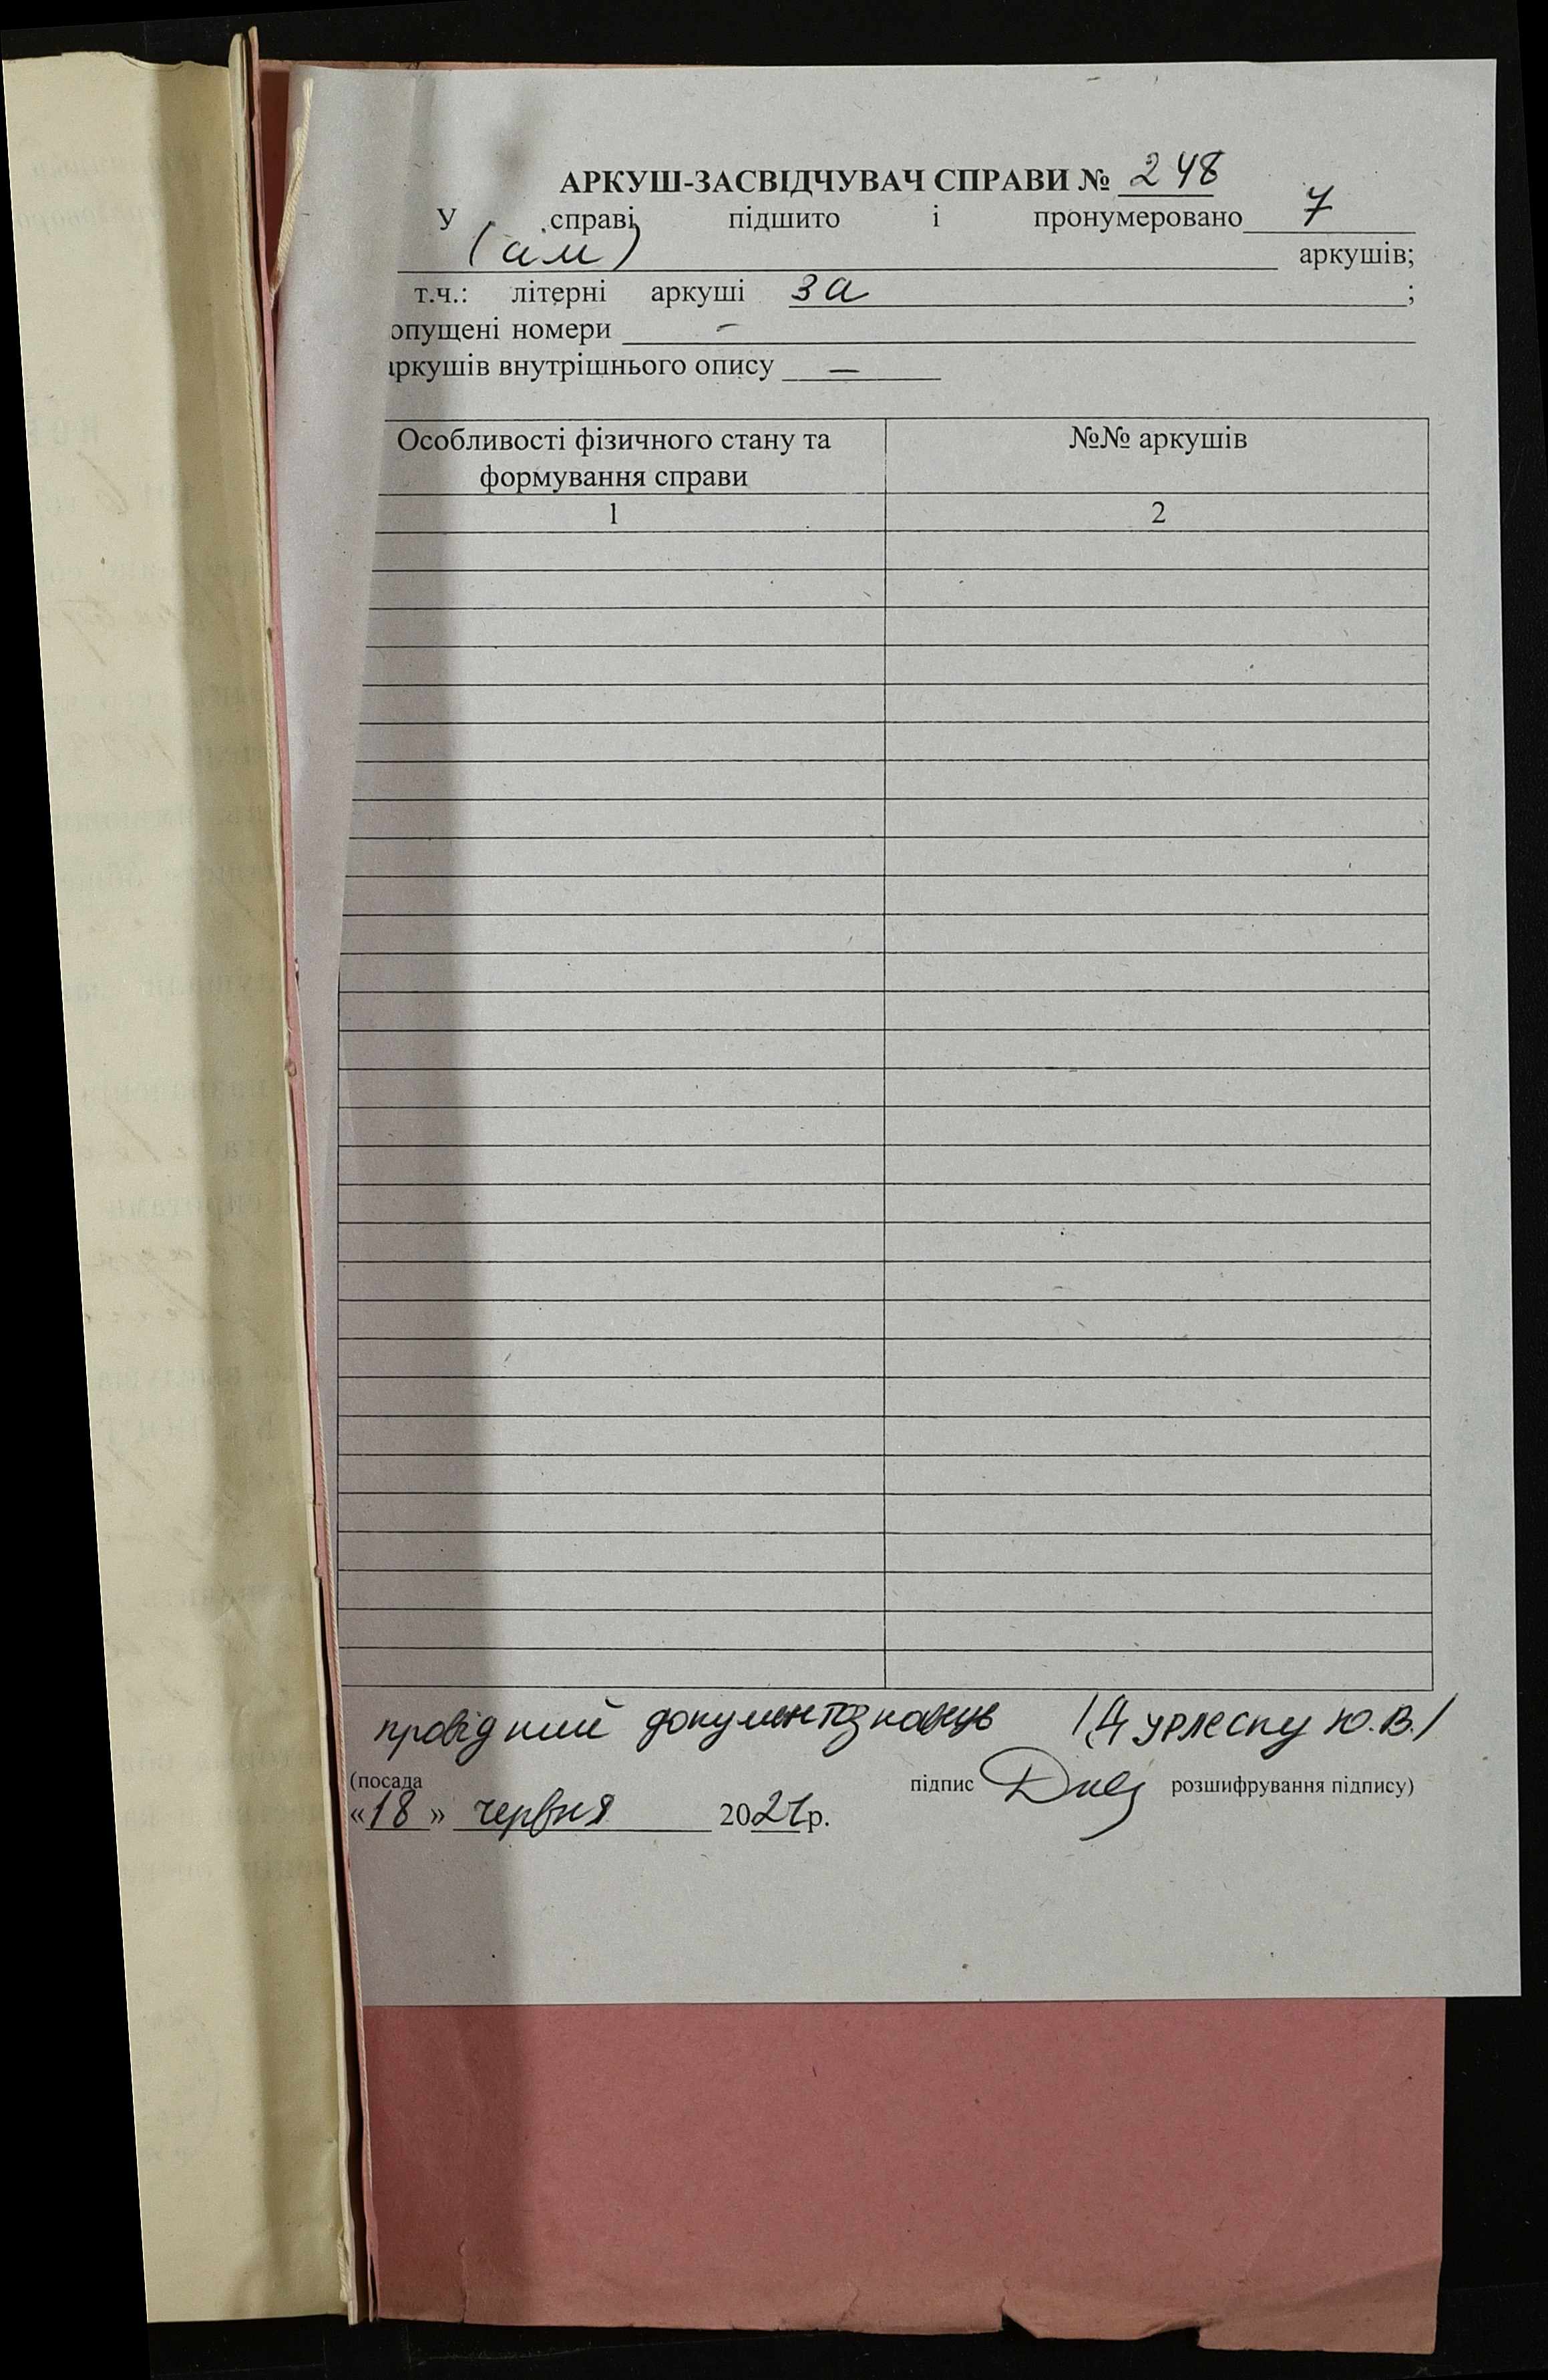 АРКУШ-ЗАСВІДЧУВАЧ СПРАВИ № 248
У справі підшито і пронумеровано 7
(сім) аркушів;
т.ч.: літерні аркуші 3а ;
опущені номери –
аркушів внутрішнього опису —
Особливості фізичного стану та формування справи
№№ аркушів
1 2
провідний документознавець /Дурлеспу Ю.В./
(посада підпис розшифрування підпису)
«18» червня 2021р.